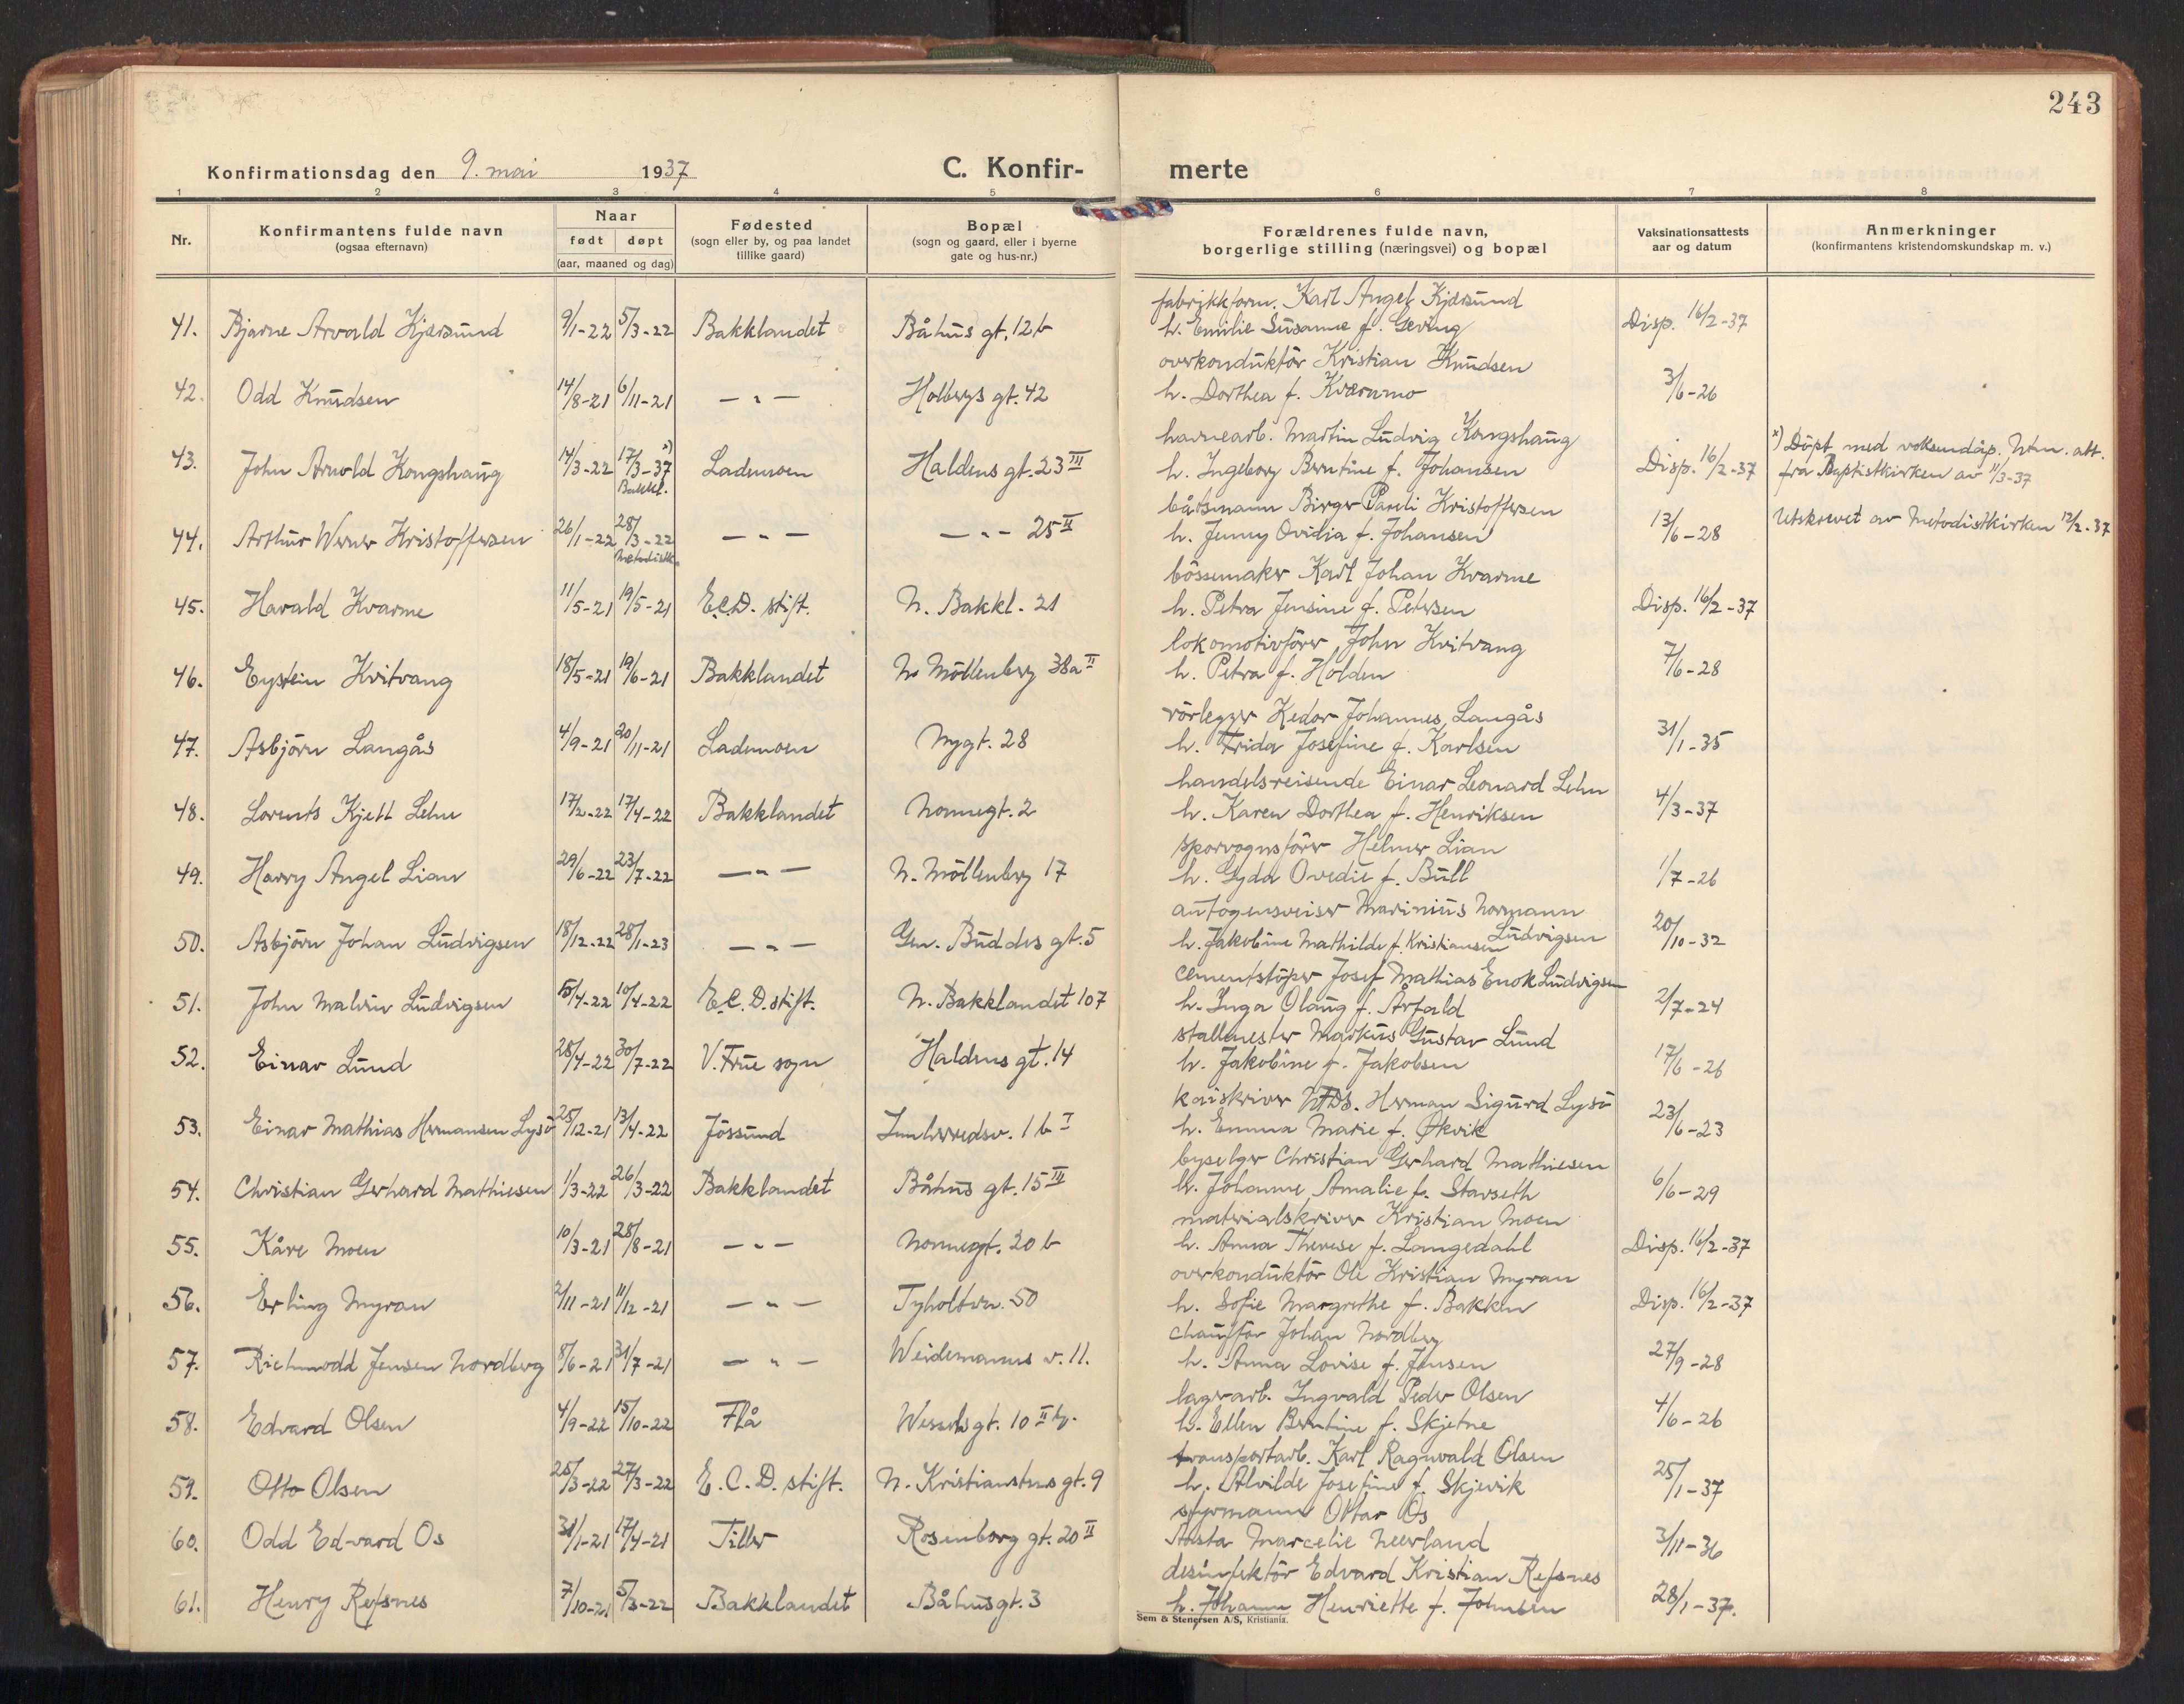 243
Konfirmationsdag den 9. mai 1937
C. Konfir- merte
1 2 3 4 5 6 7 8
Nr.
Konfirmantens fulde navn
(ogsaa efternavn)
Naar
født døpt
(aar, maaned og dag)
Fødested
(sogn eller by, og paa landet
tillike gaard)
Bopæl
(sogn og gaard, eller i byerne
gate og hus-nr.)
Forældrenes fulde navn,
borgerlige stilling (næringsvei) og bopæl
Vaksinationsattests
aar og datum
Anmerkninger
(konfirmantens kristendomskundskap m. v.)
fabrikkform. Karl Angel Kjærsund
41. Bjarne Arvald Kjærsund 9/1-22 5/3-22 Bakklandet Båhus gt. 12b h. Emilie Susanne f. Geving Disp. 16/2-37
overkonduktör Kristian Knudsen
42. Odd Knudsen 14/8-21 6/11-21 — " — Holbergs gt. 42 h. Dorthea f. Kværnmo 3/6-26
havnearb. Martin Ludvig Kongshaug
43. John Arnold Kongshaug 14/3-22 17/3-37 x) Bakkl. Lademoen Haldens gt. 23 III h. Ingeborg Berntine f. Johansen Disp. 16/2-37 x) Döpt med voksendåp. Utm. att.
fra Baptistkirken av 11/3-37
båtsmann Birger Pareli Kristoffersen
44. Arthur Werner Kristoffersen 26/1-22 28/3-22 Metodistk. — " — — " — 25 II h. Jenny Ovidia f. Johansen 13/6-28 Utskrevet av Metodistkirken 12/2-37
bössemaker Karl Johan Kvarme
45. Harald Kvarme 11/5-21 19/5-21 E.C.D. stift. N. Bakkl. 21 h. Petra Jensine f. Petersen Disp. 16/2-37
lokomotivförer John Kvitvang
46. Eystein Kvitvang 18/5-21 19/6-21 Bakklandet N. Möllenberg 38a II h. Petra f. Holden 7/6-28
rörlegger Kedor Johannes Langås
47. Asbjörn Langås 4/9-21 20/11-21 Lademoen Nygt. 28 h. Frida Josefine f. Karlsen 31/1-35
handelsreisende Einar Leonard Lehn
48. Lorents Kjell Lehn 17/2-22 17/4-22 Bakklandet Nonnegt. 2 h. Karen Dorthea f. Henriksen 4/3-37
sporvognsförer Helmer Lian
49. Harry Angel Lian 29/6-22 23/7-22 — " — N. Möllenberg 17 h. Gyda Ovedie f. Bull 1/7-26
autogensveiser Marinius Normann Ludvigsen
50. Asbjörn Johan Ludvigsen 18/12-22 28/1-23 — " — Gen. Buddes gt. 5 h. Jakobine Mathilde f. Kristiansen 20/10-32
cementstöper Josef Mathias Enok Ludvigsen
51. John Malvin Ludvigsen 5/4-22 10/4-22 E.C.D. stift. N. Bakklandet 107 h. Inga Olaug f. Årfald 2/7-24
stallmester Markus Gustav Lund
52. Einar Lund 28/4-22 30/7-22 V. Frue sogn Haldens gt. 14 h. Jakobine f. Jakobsen 17/6-26
kaiskriver NFDS. Herman Sigurd Lysö
53. Einar Mathias Hermansen Lysö 25/12-21 13/4-22 Jössund Innherredsv. 1 b I h. Emma Marie f. Økvik 23/6-23
byselger Christian Gerhard Mathiesen
54. Christian Gerhard Mathiesen 1/3-22 26/3-22 Bakklandet Båhus gt. 15 III h. Johanne Amalie f. Stavseth 6/6-29
materialskriver Kristian Moen
55. Kåre Moen 10/3-21 28/8-21 — " — Nonnegt. 30 b h. Anna Therese f. Langedahl Disp. 16/2-37
overkonduktör Ole Kristian Myran
56. Erling Myran 2/11-21 11/12-21 — " — Tyholtvn. 50 h. Sofie Margrethe f. Bakken Disp. 16/2-37
chaufför Johan Nordberg
57. Richmodd Jensen Nordberg 8/6-21 31/7-21 — " — Weidemanns v. 11. h. Anna Lovise f. Jensen 27/9-28
lagerarb. Ingvald Peder Olsen
58. Edvard Olsen 4/9-22 15/10-22 Flå Wesselsgt. 10 II h. Ellen Berntine f. Skjetne 4/6-26
transportarb. Karl Ragnvald Olsen
59. Otto Olsen 25/3-22 27/3-22 E. C. D. stift. N. Kristianstens gt. 9 h. Alvilde Josefine f. Skjevik 25/1-37
styrmann Ottar Os
60. Odd Edvard Os 31/1-21 17/4-21 Tiller Rosenborg gt. 20 II Aasta Marcelie Neerland 3/11-36
desinfektör Edvard Kristian Refsnes
61. Henry Refsnes 7/10-21 5/3-22 Bakklandet Båhusgt. 3 h. Johanne Henriette f. Johnsen 28/1-37.
Sem & Stenersen A/S, Kristiania.